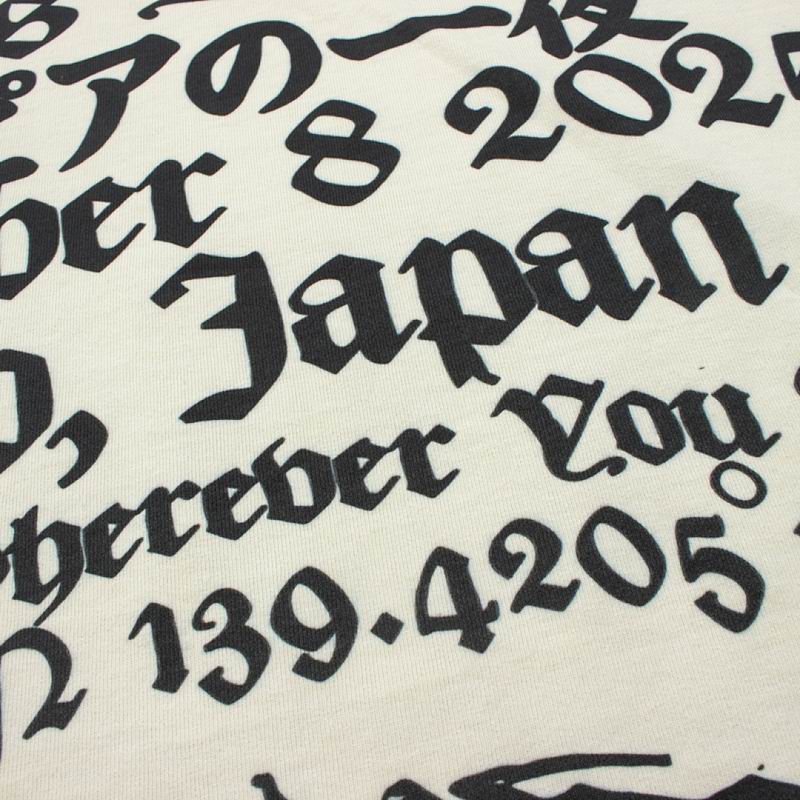 8
アの一夜
ber 8 202
, Japan
wherever You
N 139.4205°